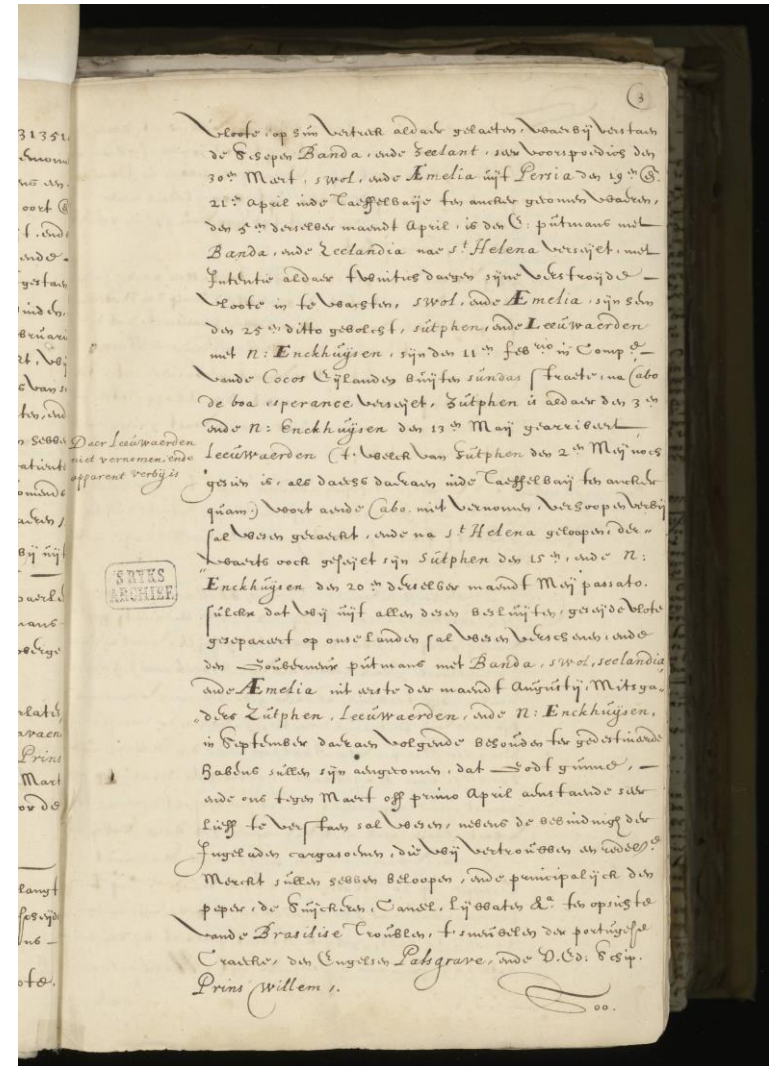 3
vloote, op sijn vertrek aldaer gelaeten, waerbij verstaen
de Schepen Banda, ende Zeelant, seer voorspoedich den
30en Meert, swol, ende Æmelia uijt Persia den 19en @
21en April inde Taeffelbaije ten ancker gecomen waeren,
den 5en derselver maendt April, is den E: pütmans met
Banda, ende Zeelandia nae st Helena verseijlt, met
Intentie aldaer twintich daegen sijne verstroijde
vloote in te wachten, swol, ende Æmelia, sijn hem
den 25en ditto gevolcht, sütphen, ende Leeüwaerden
met N: Enckhüijsen, sijn den 11en febrio in Compe
vande Cocos Eijlanden büijten sündas straete, na Cabo
de boa esperance verseijlt, Zütphen is aldaer den 3en
ende N: Enckhüijsen den 13en Maij gearriveert
Leeüwaerden (t welck van Zütphen den 2en Meij noch
gesien is, als daechs daeraen inde Taeffelbaij ten ancker
quam) wort aende Cabo, niet vernomen, verhoopen verbij
sal wesen geraeckt, ende na st Helena geloopen, der-
waerts oock geseijlt sijn Sütphen den 15en, ende N:
Enckhüijsen den 20en derselver maendt Meij passato.
sülckx dat wij uijt allen desen beslüijten, geseijde vlote
gesepareert op onse Landen sal wesen verschenen, ende
den Goüverneur pütmans met Banda, swol, seelandia,
ende Æmelia int eerste der maendt Aügüstij, Mitsga-
ders Zütphen, Leeüwaerden, ende N: Enckhüijsen,
in September daeraen volgende behouden ter gedestineerde
havens süllen sijn aengecomen, dat Godt günne,
ende ons tegen Maert off primo April aenstaende seer
Lieff te verstaen sal wesen, nevens de bevindingh der
Ingeladen cargasoenen, die wij vertroüwen een redele
Merckt süllen hebben beloopen, ende principalijck den
peper, de Süijckeren, Caneel, Lijwaten &a ten opsichte
vande Brasilise Troüblen, t sneüvelen der portügese
Craecke, den Engelsen Palsgrave, ende V.Ed: Schip.
Prins Willem.
oo.
Daer Leeüwaerden
niet vernemen, ende
apparent verbij is
S RYKS
ARCHIEF